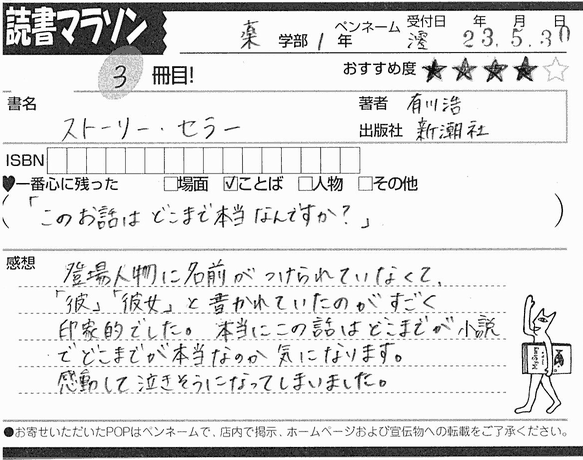 読書マラソン
薬 学部 1 年 ペンネーム 澪 受付日 23.5.30 年 月 日
3 冊目! おすすめ度 ★★★★☆
書名 ストーリー・セラー
著者 有川浩
出版社 新潮社
ISBN
♥一番心に残った □場面 ☑ことば □人物 □その他
(「このお話は どこまで本当なんですか?」)
感想
登場人物に名前がつけられていなくて、
「彼」「彼女」と書かれていたのがすごく
印象的でした。本当にこの話はどこまでが小説
でどこまでが本当なのか 気になります。
感動して泣きそうになってしまいました。
●お寄せいただいたPOPはペンネームで、店内で掲示、ホームページおよび宣伝物への転載をご了承ください。